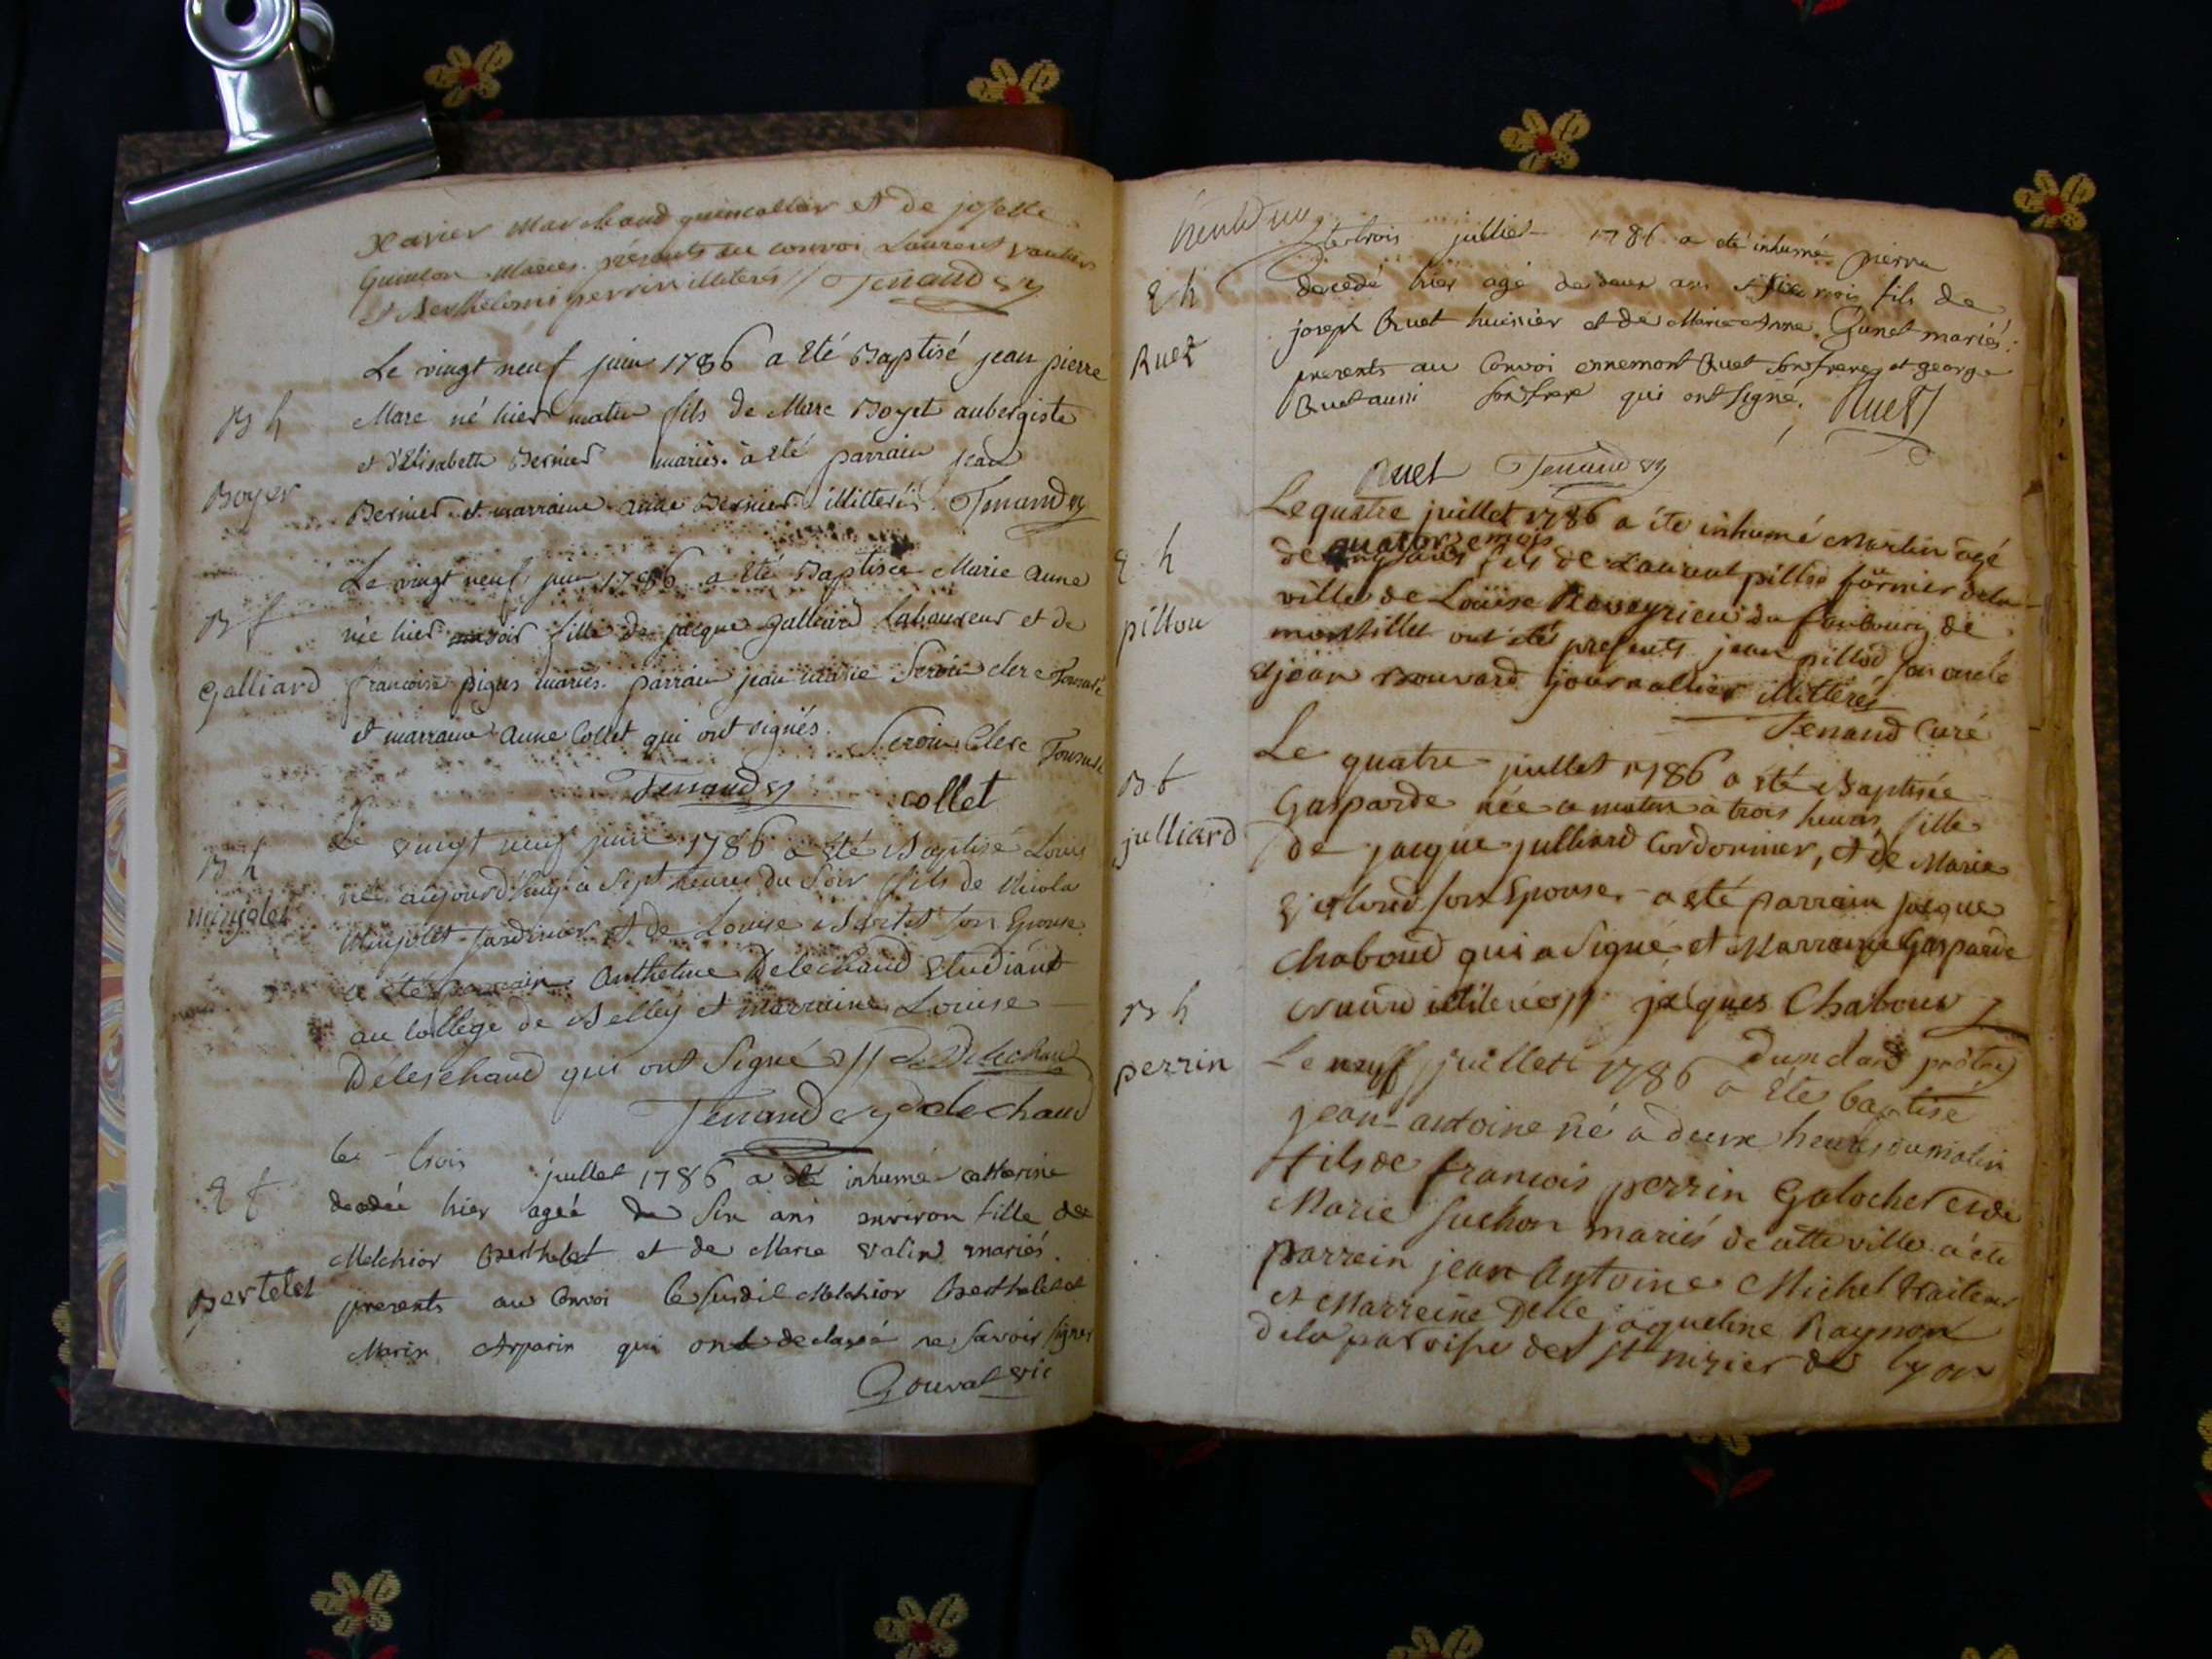 Xavier Marchand quincallier et de josette
Guinton Mariés. présents au convoi Laurent
et Berthelemi perrin illiterés // Tenand
Le vingt neuf juin 1786 a Eté Baptisé jean pierre
B h Marc né hier matin fils de Marc Boyet aubergiste
et d'Elisabeth Bernier mariés. à eté parrain jean
Boyer Bernier et marraine anne Bernier illitterés. Tenand
Le vingt neuf juin 1786 a Eté Baptisée Marie anne
B f née hier soir fille de jacque galliard Laboureur et de
Galliard francoise pigus mariés. parrain jean marie Seroin clerc Tonsuré
et marraine anne Collet qui ont signés. Seroin Clerc Tonsuré
Tenand collet
Le vingt neuf juin 1786 a été Baptisé Louis
B h né aujourd'huy à Sept heures du Soir fils de Nicola
mingolet Mingolet Jardinier et de Louise Bertet son Epouse
a été parrain Anthelme Delechaud Etudiant
au College de Belley et marraine Louise
Deleschaud qui ont Signé // Delechaud
Tenand delechaud
le trois juillet 1786 a eté inhumé catherine
E f decedée hier ageé de Six ans environ fille de
Melchior Berthelet et de Marie valin mariés.
Bertelet presents au Convoi le susdit Melchior Berthelet et
Marin Arparin qui ont declaré ne savoir signer
Gouvat vic
le trois julliet 1786 a eté inhumé pierre
E h decedé hier agé de deux ans et six mois fils de
joseph Ruet huissier et de Marie Anne Gunet mariés.
Ruet presents au Convoi ennemont Ruet son frere et george
Ruet aussi son frere qui ont signé. Ruet
Ruet Tenand
Le quatre juillet 1786 a été inhumé Martin âgé
E h de quatorze mois fils de Laurent pillod fournier de la
pillou ville de Loüise Reveyrieu du faubourg de
montillet ont été presents jean pillod son oncle
et jean Bouvard journallier illitterés
Tenand Curé
Le quatre juillet 1786 a été Baptisée
B f Gasparde née a matin à trois heures, fille
julliard de jacque julliard Cordonnier, et de Marie
son Epouse, a été parrain jacque
Chaboud qui a Signé et Marraine Gasparde
illiterés // jacques Chaboud
Dumolard prêtre
B h Le neuf juillett 1786 a Eté baptisé
perrin jean-antoine né a deux heures du matin
fils de francois perrin Galocher et de
Marie Suchon mariés de cette ville. a été
parrein jean Antoine Michel traiteur
et Marreine Delle jaqueline Raynon
de la paroisse de St nizier de lyon